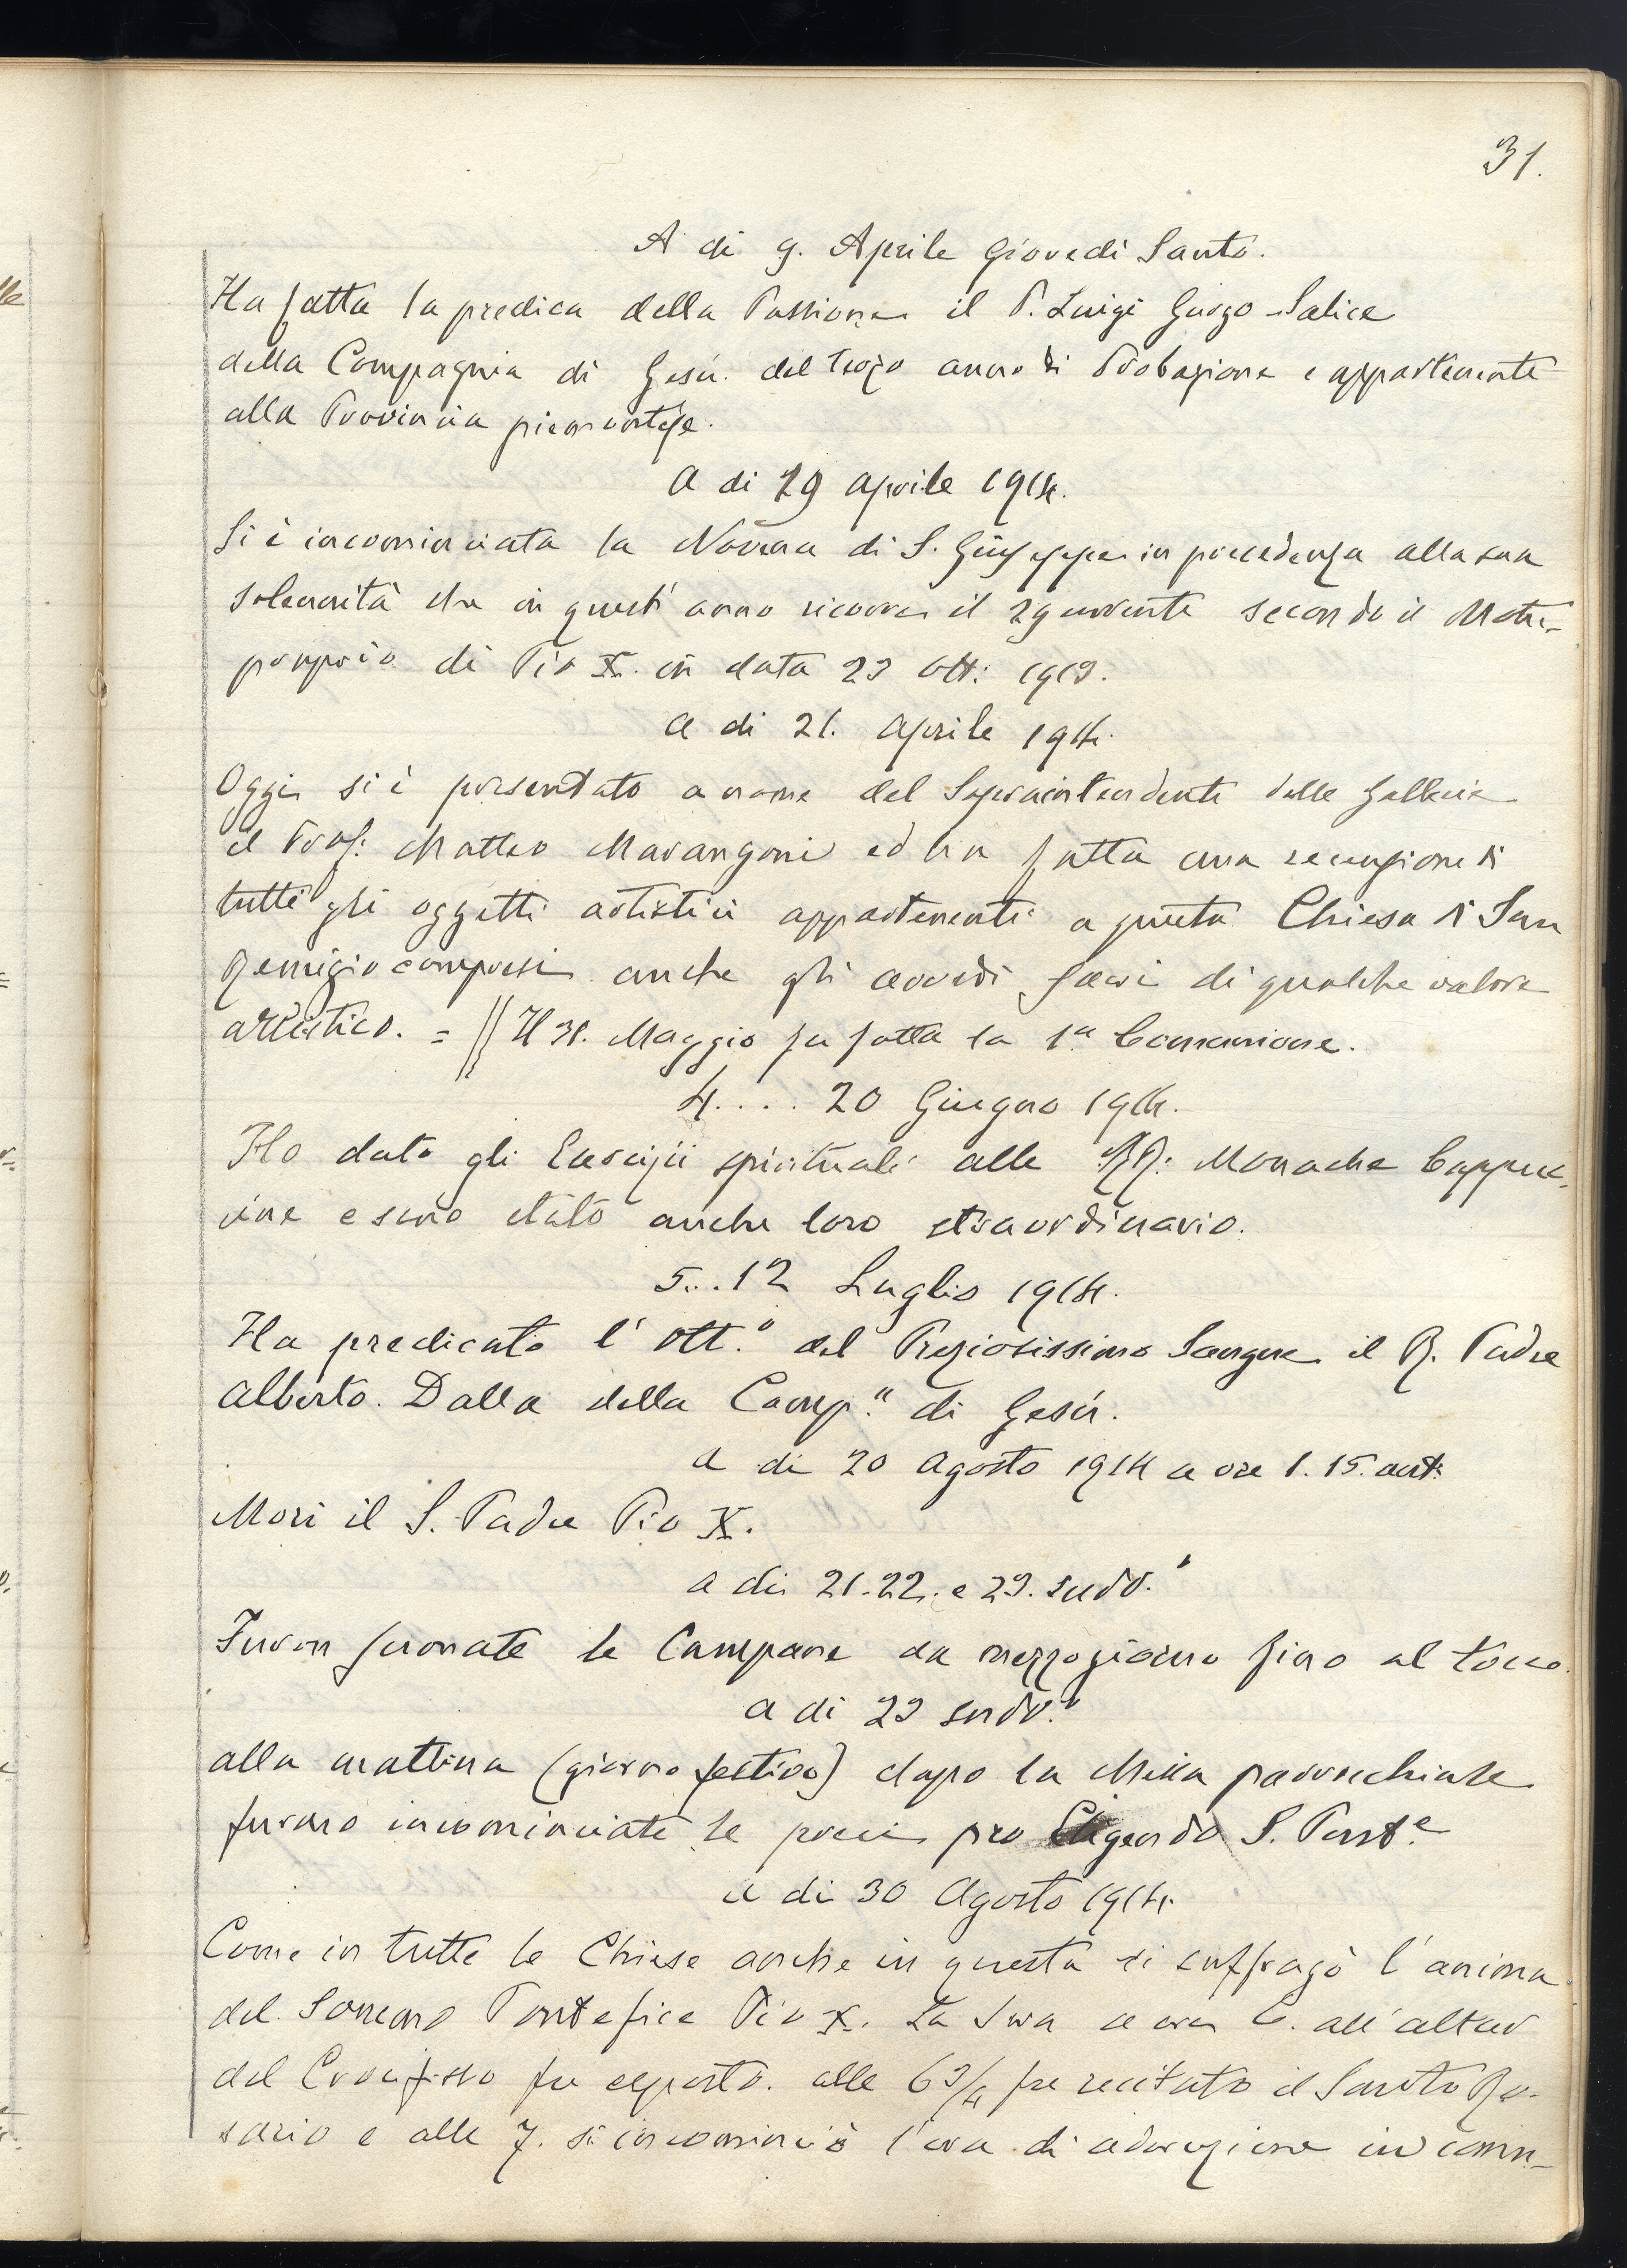 31.
A di 9. Aprile Giovedì Santo.
Ha fatta la predica della Passione il P. Luigi Guozo-Salice
della Compagnia di Gesù. del terzo anno di Probazione e appartenente
alla Provincia piemontese.
A di 29 aprile 1914.
Si è incominciata la Novena di S. Giuseppe in precedenza alla sua
solennità che in quest'anno ricorre il 29 corrente secondo il Motu-
proprio di Pio X. in data 23 Ott: 1913.
a di 21. aprile 1914.
Oggi si è presentato a nome del Sopraintendente delle Gallerie
il Prof: Matteo Marangoni ed ha fatta una recensione di
tutti gli oggetti artistici appartenenti a questa Chiesa di San
Remigio compresi anche gli arredi sacri di qualche valore
artistico. = || Il 31. Maggio fu fatta la 1ª Comunione.
4.... 20 Giugno 1914.
Ho dato gli Esercizii spirituali alle RR: Monache Cappuc-
cine e sono stato anche loro straordinario.
5...12 Luglio 1914.
Ha predicato l'Ott.º del Preziosissimo Sangue il R. Padre
Alberto. Dalla della Comp.ª di Gesù.
a di 20 agosto 1914 a ore 1.15. ant:
Morì il S. Padre Pio X.
a di 21.22. e 23. sudd.º
Furon suonate le Campane da mezzogiorno fino al tocco.
a di 23 sudd.º
alla mattina (giorno festivo) dopo la Messa parrocchiale
furono incominciate le preci pro Eligendo S. Pont.e
a di 30 Agosto 1914.
Come in tutte le Chiese anche in questa si suffragò l'anima
del Sommo Pontefice Pio X. La sera a ore 6. all'altar
del Crocifisso fu esposto. alle 6 3/4 fu recitato il Santo Ro-
sario e alle 7. si incominciò l'ora di adorazione in comu-